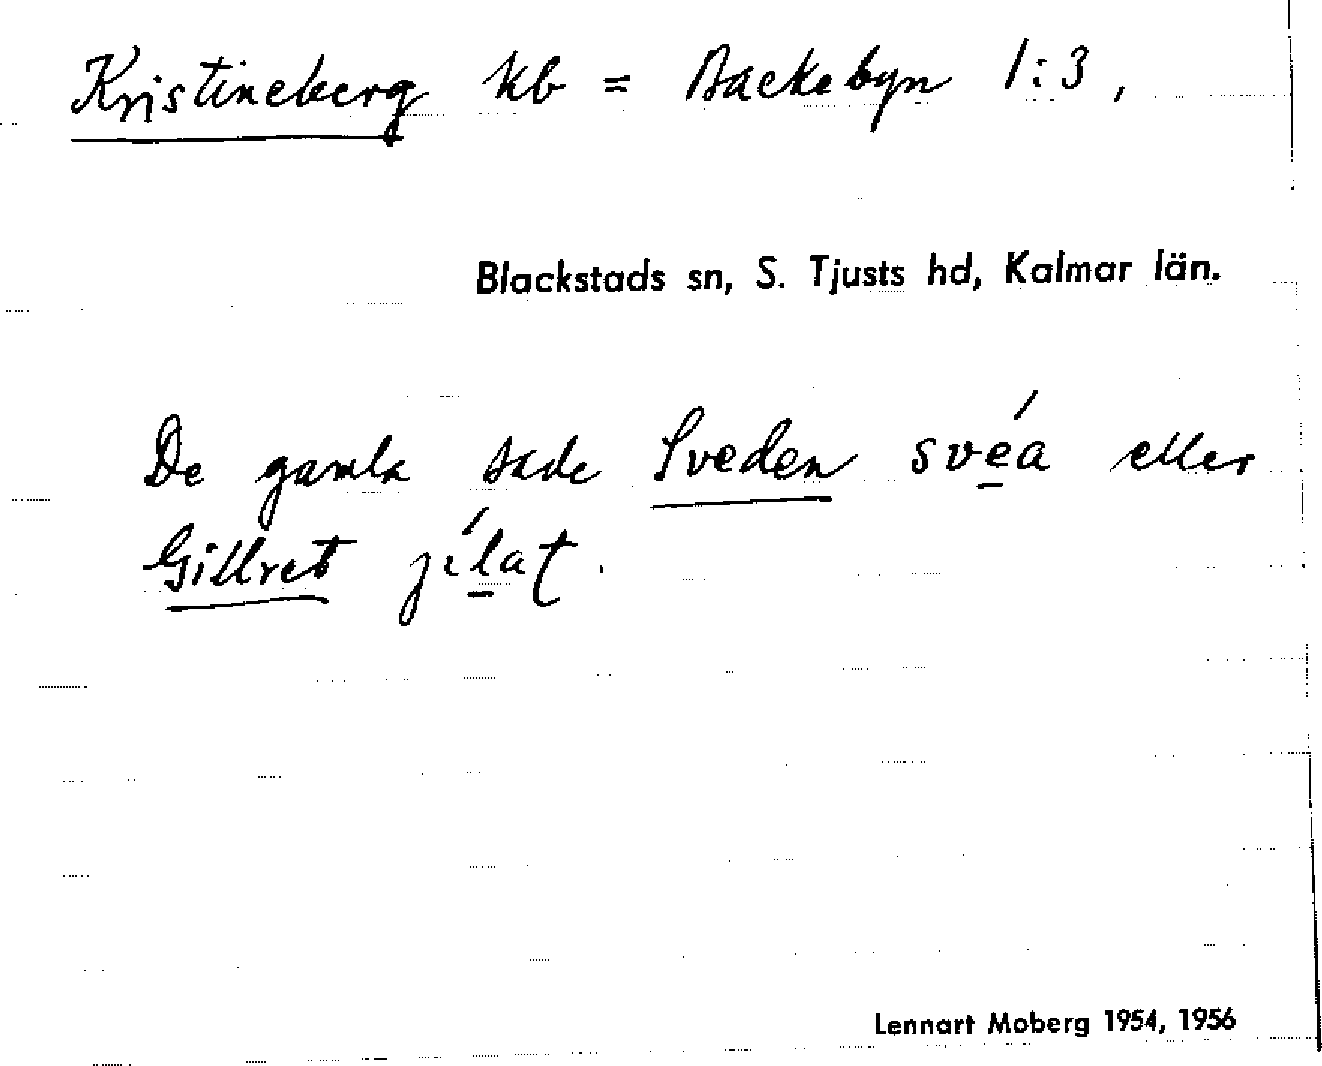 Kristineberg kb = Backebyn 1:3,
Blackstads sn, S. Tjusts hd, Kalmar län.
De gamla sade Sveden svéa eller
Gillret jílat.
Lennart Moberg 1954, 1956